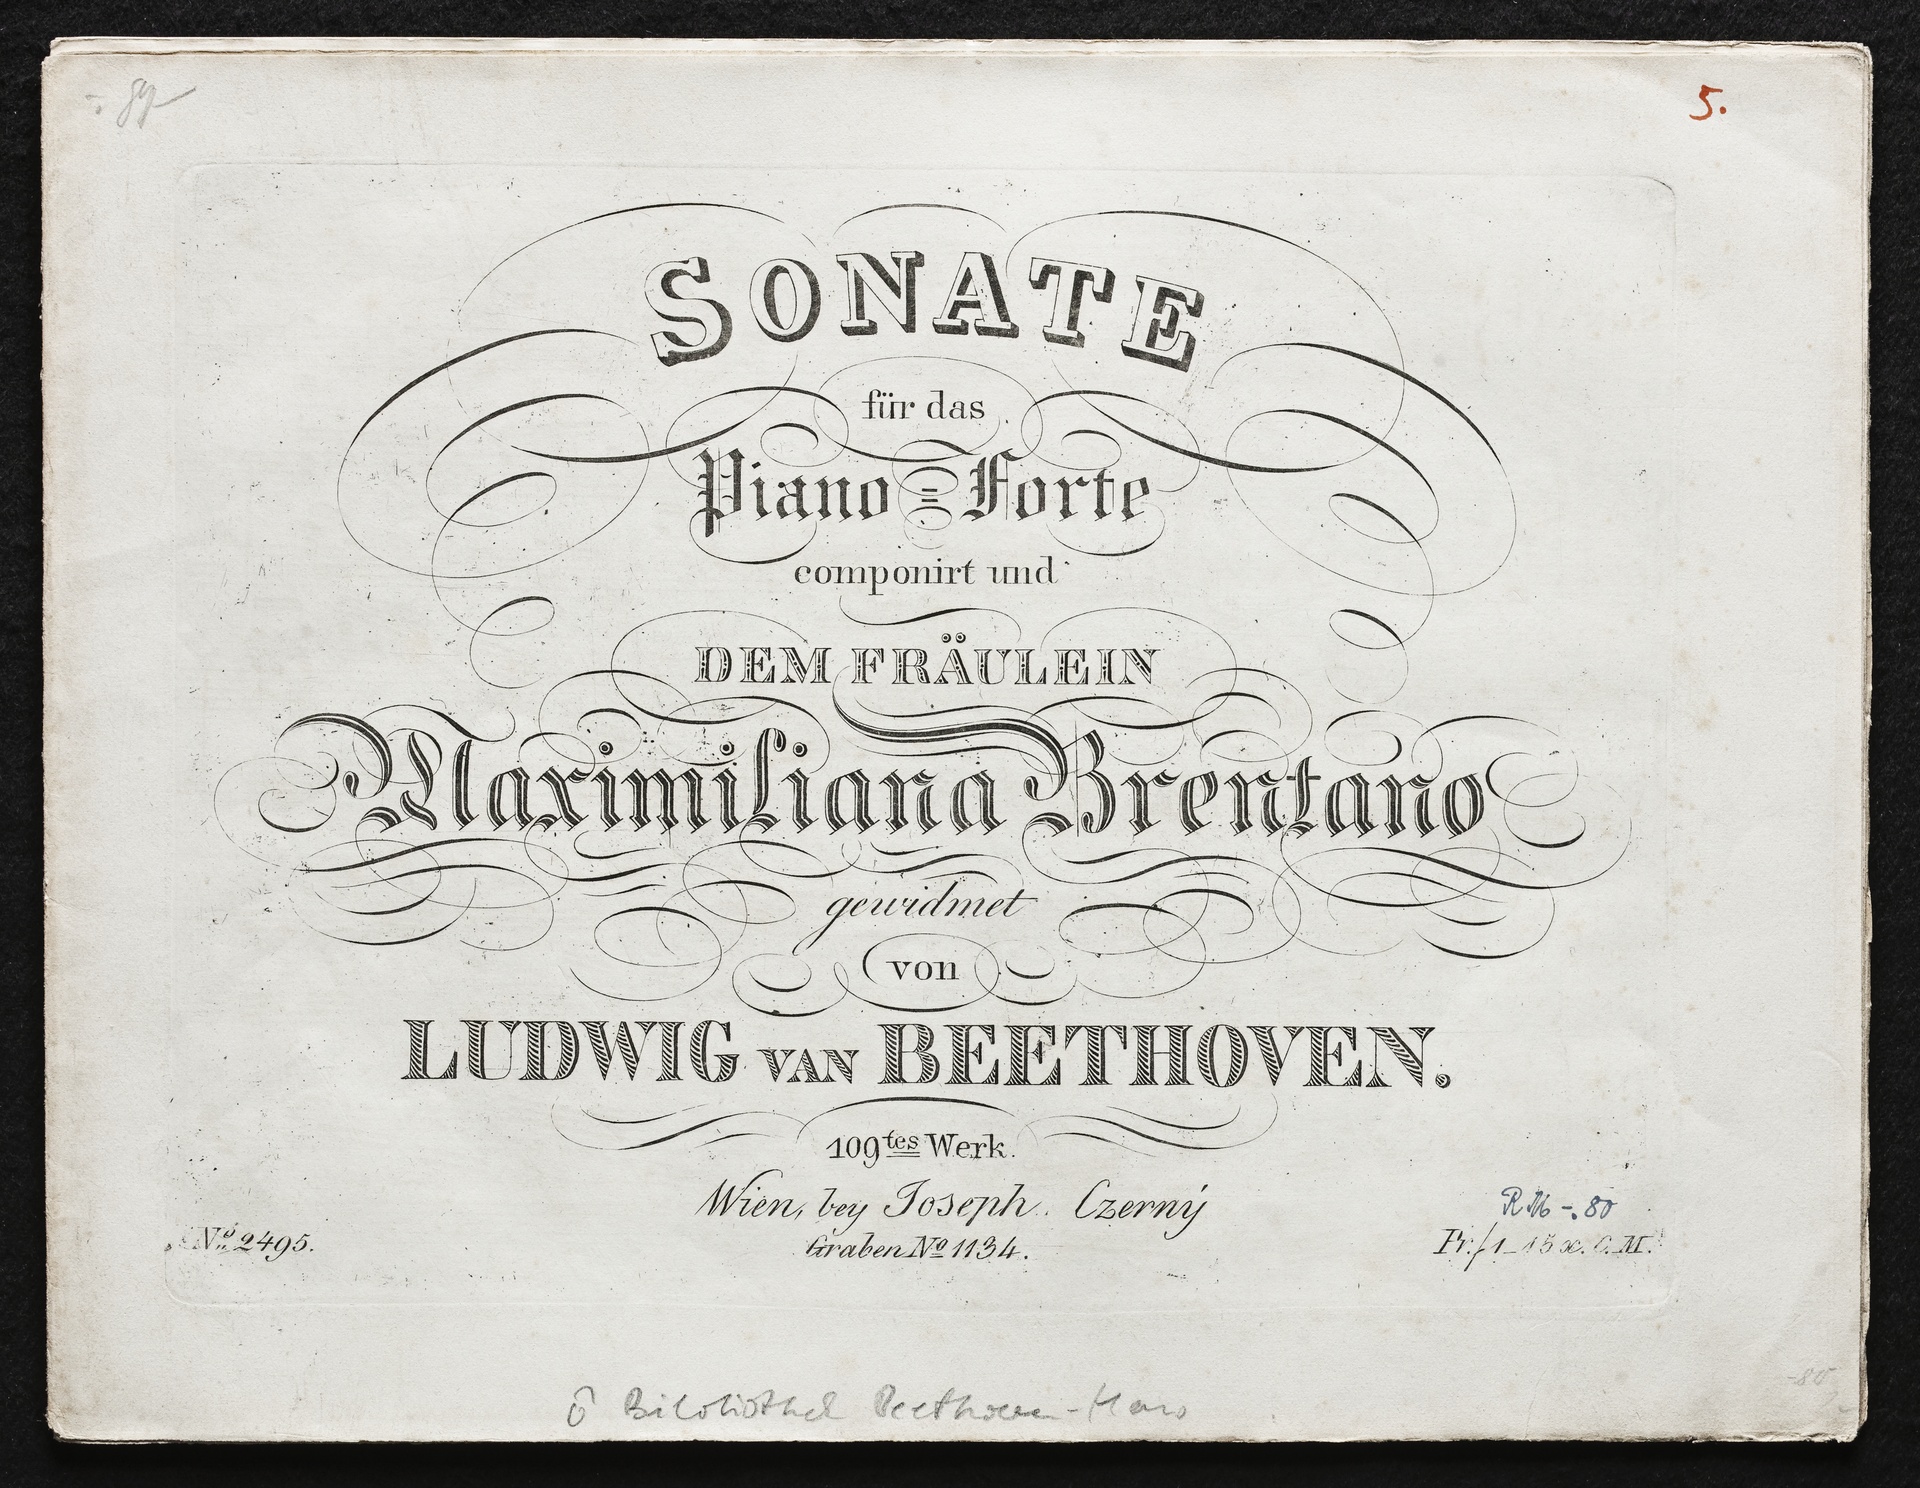 5.
SONATE
für das
Piano=Forte
componirt und
DEM FRÄULEIN
Maximiliana Brentano
gewidmet
von
LUDWIG VAN BEETHOVEN.
109tes Werk.
Wien, bey Joseph Czerný
Graben No 1134.
No 2495.
RM -.80
Pr. f 1_15 x. C.M.
Bibliothek Beethoven-Haus
-80